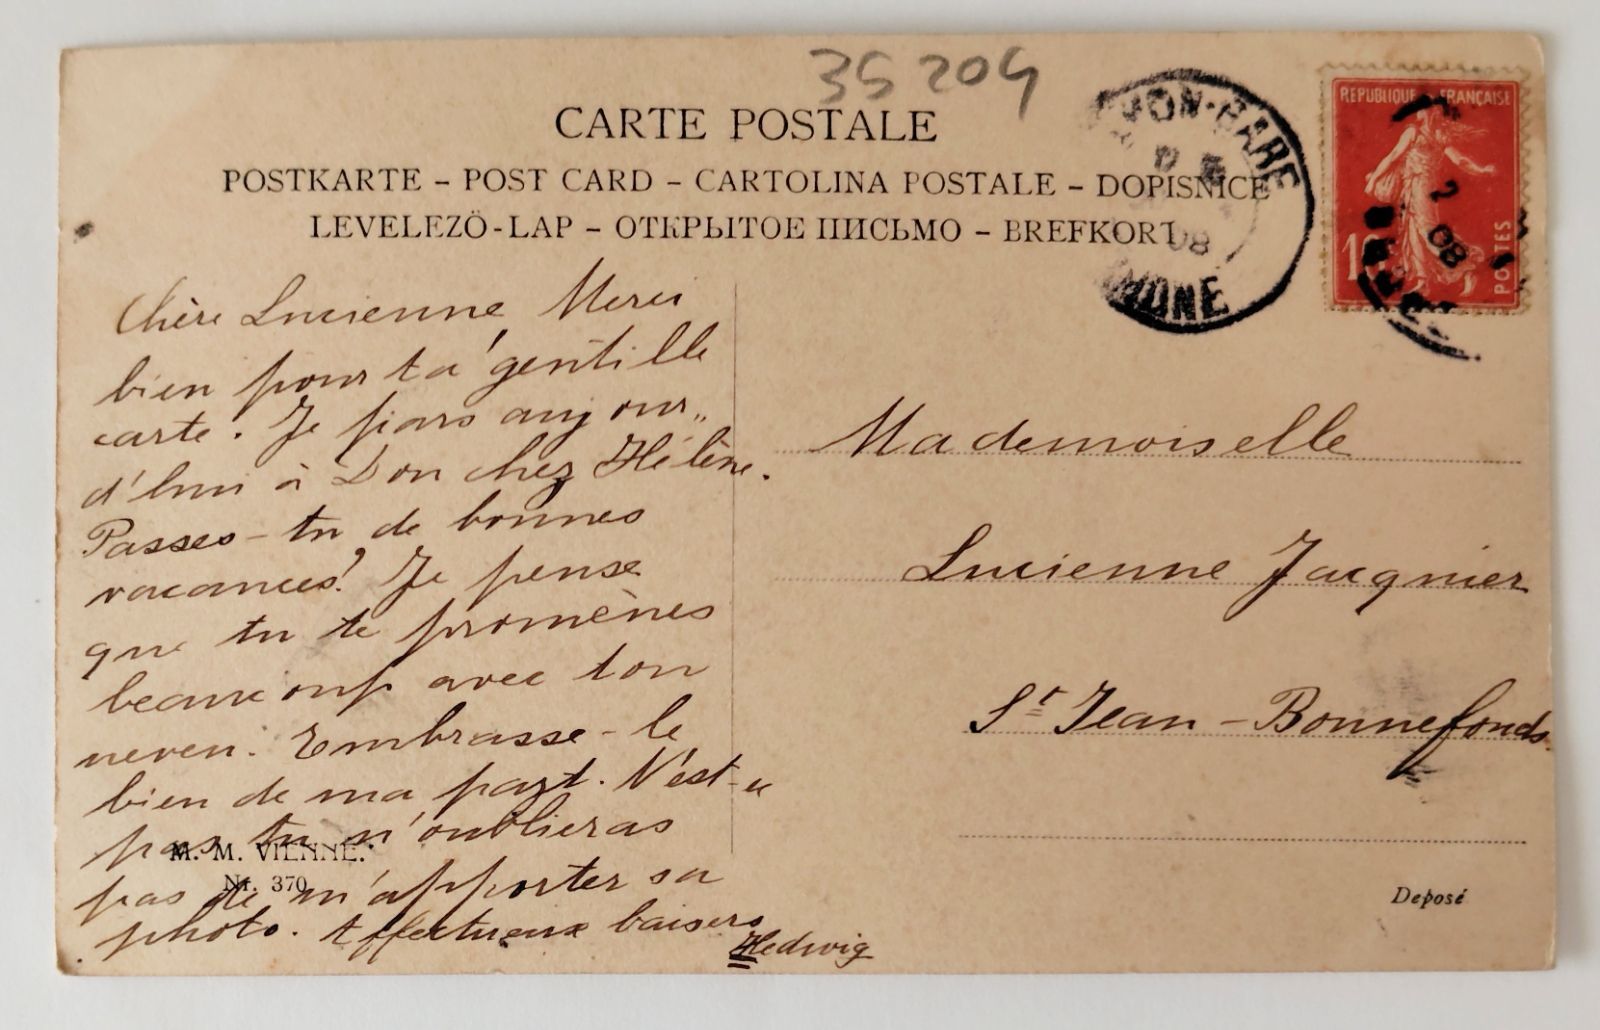 35 204
CARTE POSTALE
POSTKARTE – POST CARD – CARTOLINA POSTALE – DOPISNICE
LEVELEZÖ-LAP – ОТКРЫТОЕ ПИСЬМО – BREFKORT
YON-GARE
08
RHONE
REPUBLIQUE FRANÇAISE
10
POSTES
2
08
Chère Lucienne Merci
bien pour ta gentille
carte. Je pars aujour„
d'hui à Don chez Hélène.
Passes-tu de bonnes
vacances? Je pense
que tu te promènes
beaucoup avec ton
neveu. Embrasse-le
bien de ma part. N'est-ce
pas tu n'oublieras
pas de m'apporter sa
photo. Affectueux baisers
Hedwig
M. M. VIENNE.
Nr. 370
Mademoiselle
Lucienne Jacquier
St Jean-Bonnefonds
Deposé